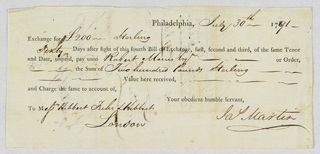 Philadelphia, July 30th 1791-
Exchange for £200 Sterling
Sixty Days after sight of this fourth Bill of Exchange, first, second and third, of the same Tenor
and Date, unpaid, pay unto Robert Morris or Order,
the Sum of Two hundred Pounds Sterling
Value here received,
and Charge the same to account of,
Your obedient humble servant,
To Hibbert Hibbert
London
Martin